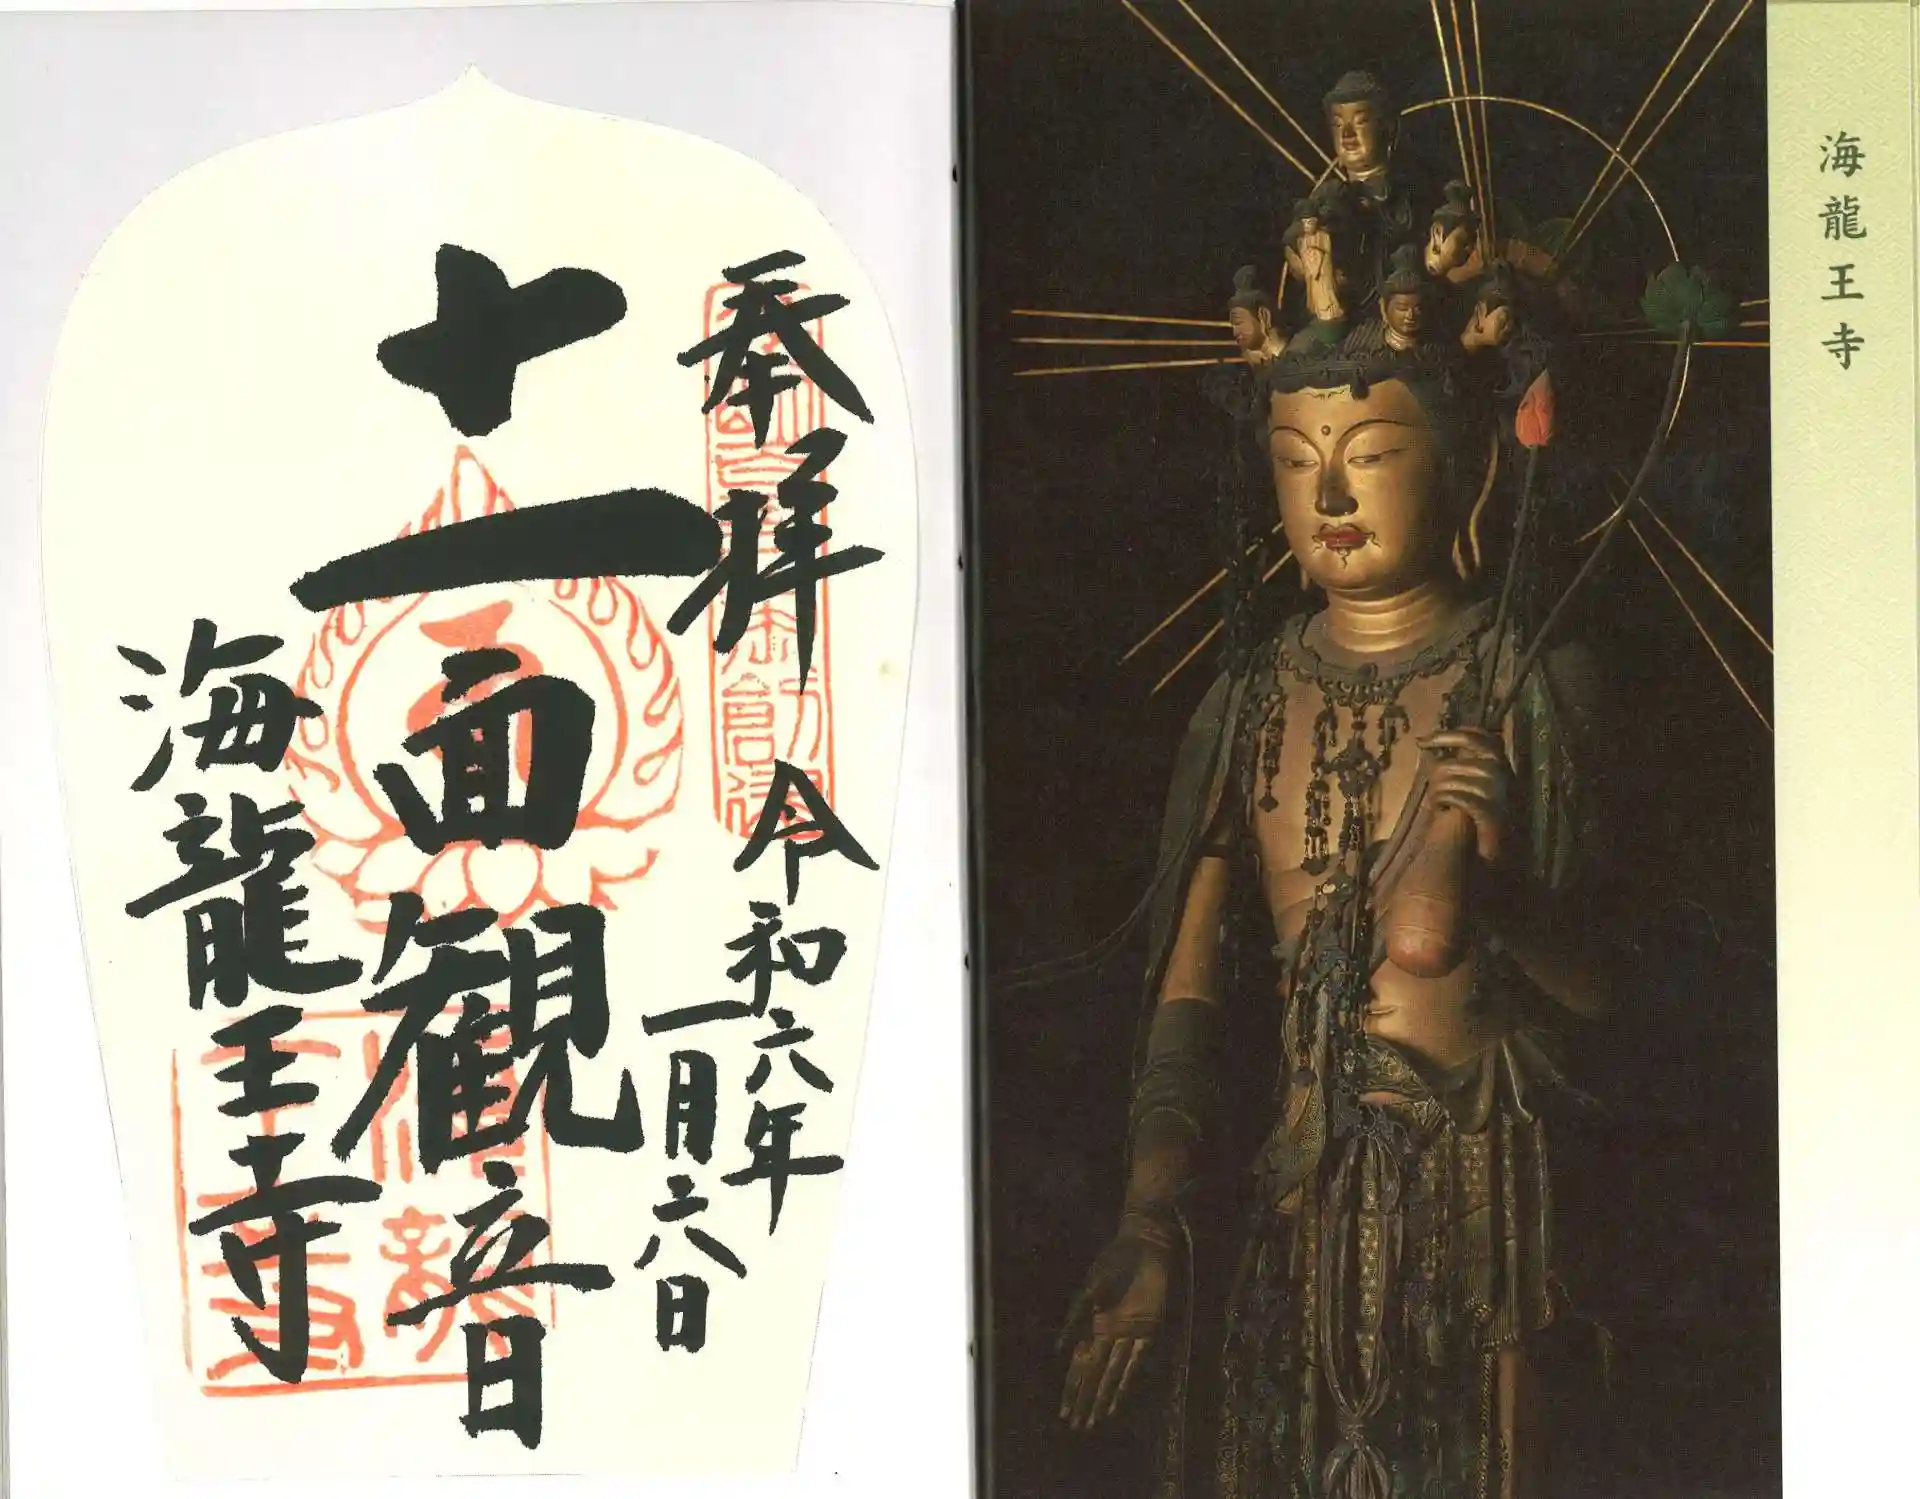 海龍王寺
奉拝
令和六年
一月六日
十一面観音
海龍王寺
海龍
王寺